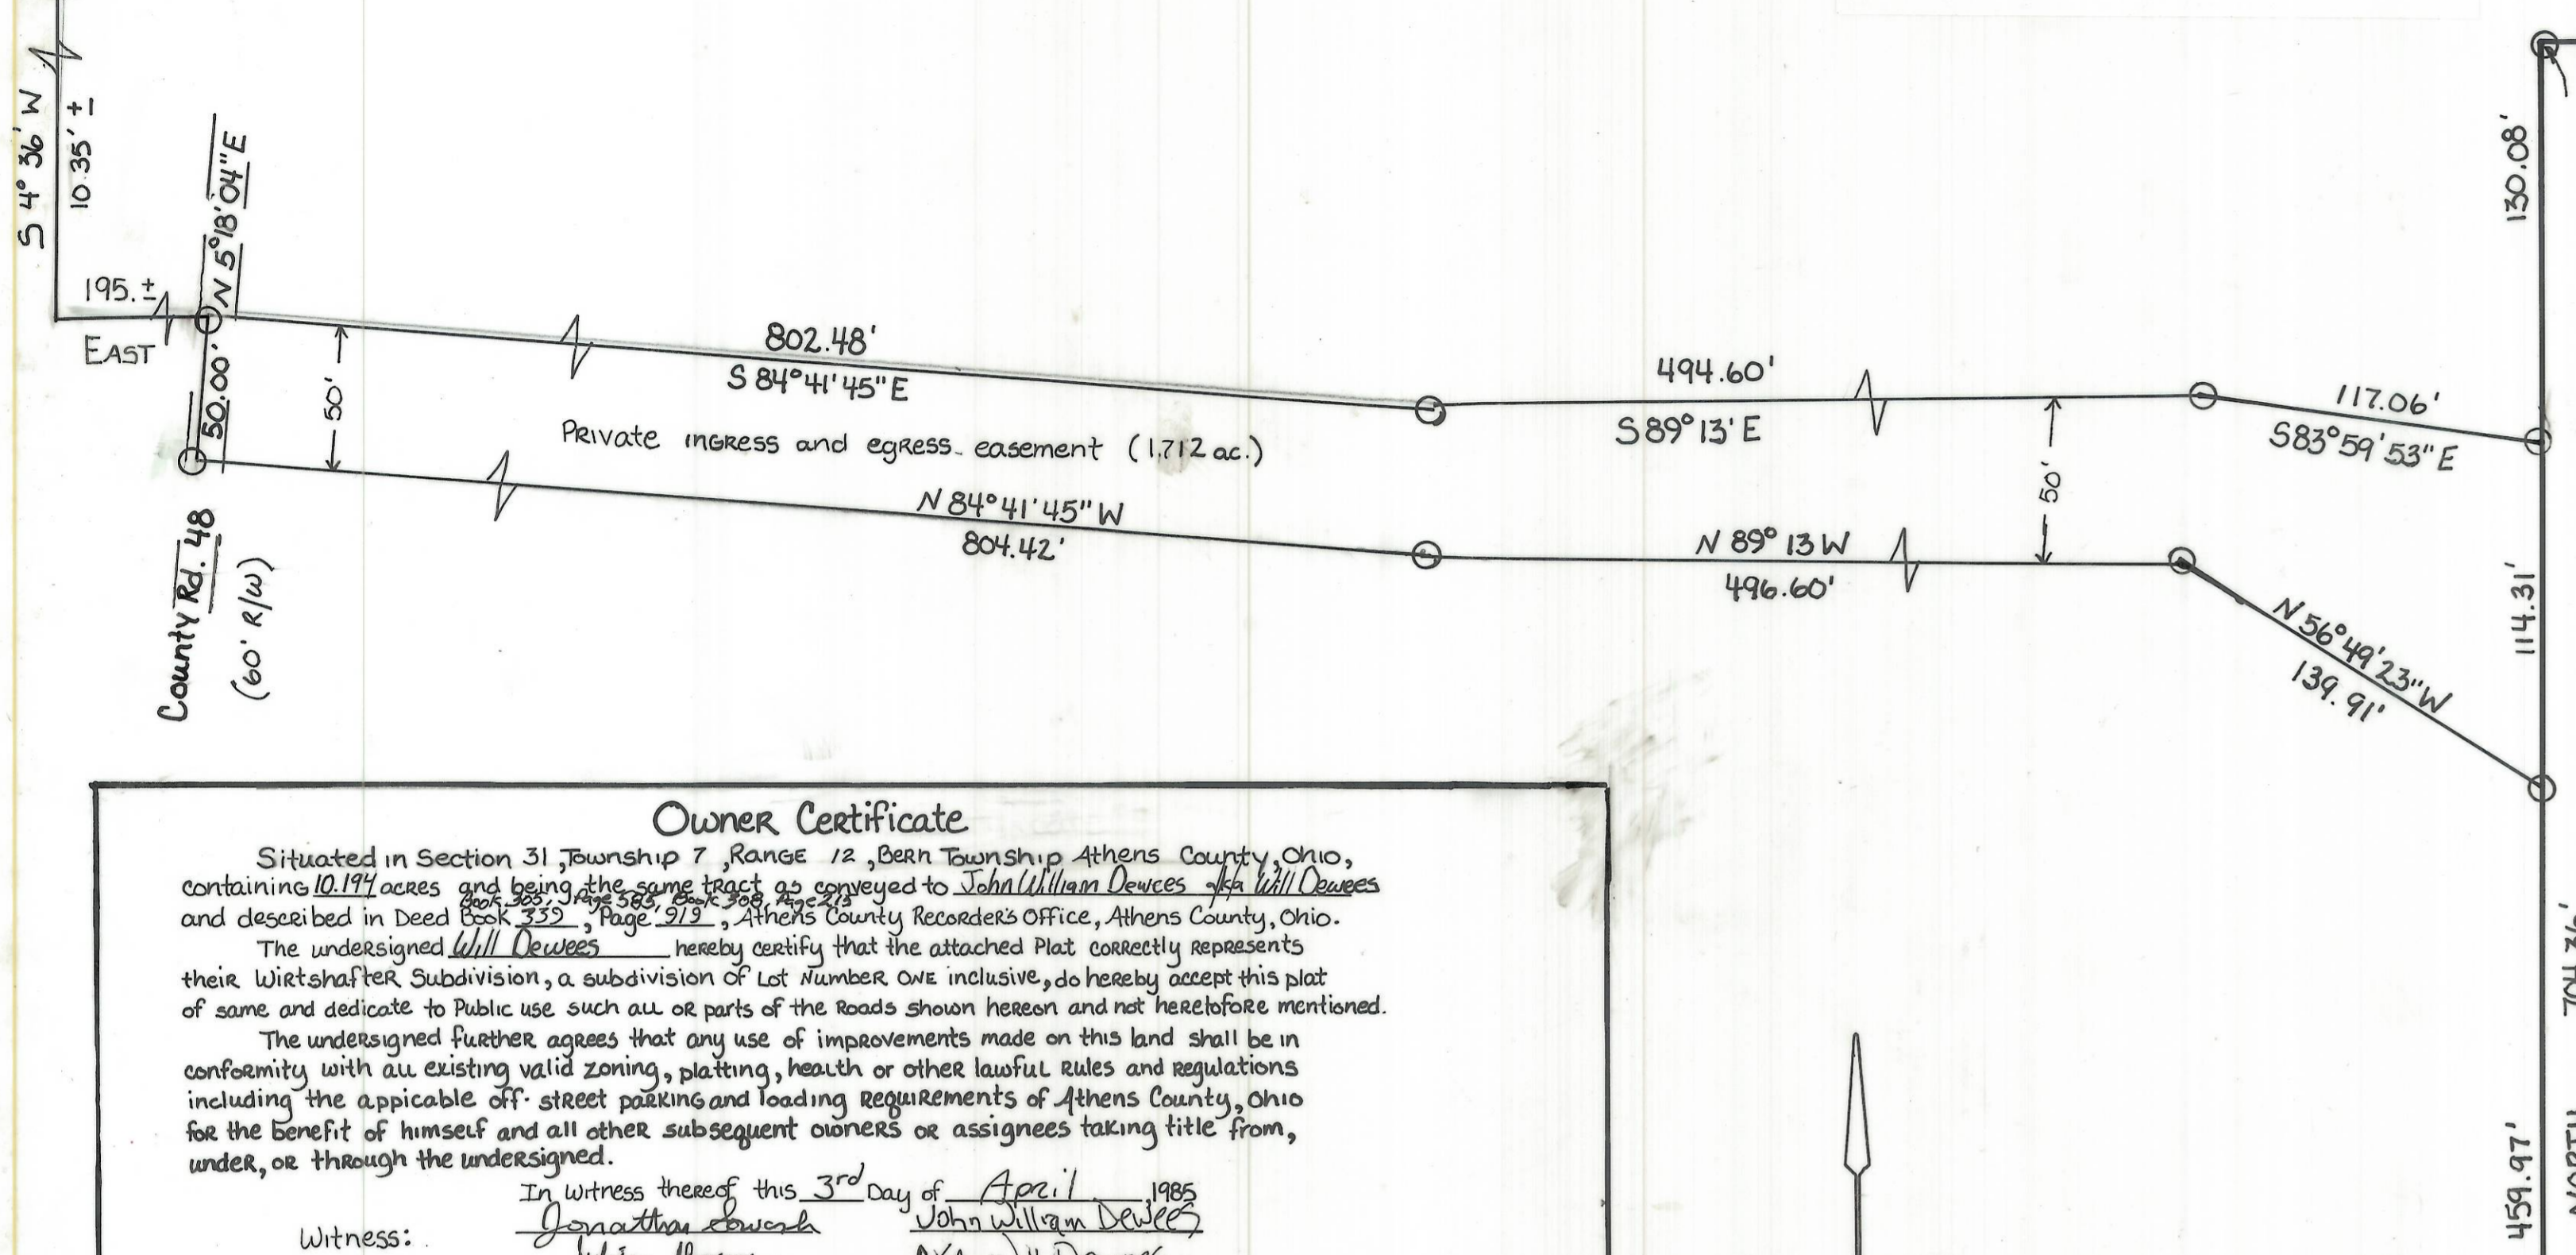 S 4° 36' W
10.35' ±
N 5°18'04"E
195.±
EAST
50.00'
50'
802.48'
S 84°41'45"E
Private ingress and egress easement (1.712 ac.)
N 84°41'45" W
804.42'
494.60'
S89°13'E
50'
N 89° 13 W
496.60'
117.06'
S83°59'53"E
N 56°49'23"W
139.91'
130.08'
114.31'
459.97'
County Rd. 48
(60' R/W)
Owner Certificate
Situated in Section 31, Township 7, Range 12, Bern Township Athens County, Ohio,
containing 10.194 acres and being the same tract as conveyed to John William Dewees a/k/a Will Dewees
Book 305, Page 585, Book 308, Page 215
and described in Deed Book 339, Page 919, Athens County Recorder's Office, Athens County, Ohio.
The undersigned Will Dewees hereby certify that the attached Plat correctly represents
their Wirtshafter Subdivision, a subdivision of Lot Number One inclusive, do hereby accept this plat
of same and dedicate to Public use such all or parts of the Roads shown hereon and not heretofore mentioned.
The undersigned further agrees that any use of improvements made on this land shall be in
conformity with all existing valid zoning, platting, health or other lawful rules and regulations
including the appicable off-street parking and loading requirements of Athens County, Ohio
for the benefit of himself and all other subsequent owners or assignees taking title from,
under, or through the undersigned.
In witness thereof this 3rd Day of April, 1985
Witness: Jonathan John William Dewees